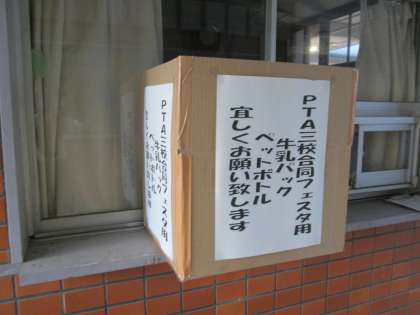 PTA三校合同フェスタ用
牛乳パック
ペットボトル
宜しくお願い致します
PTA三校合同フェスタ用
牛乳パック
ペットボトル
宜しくお願い致します